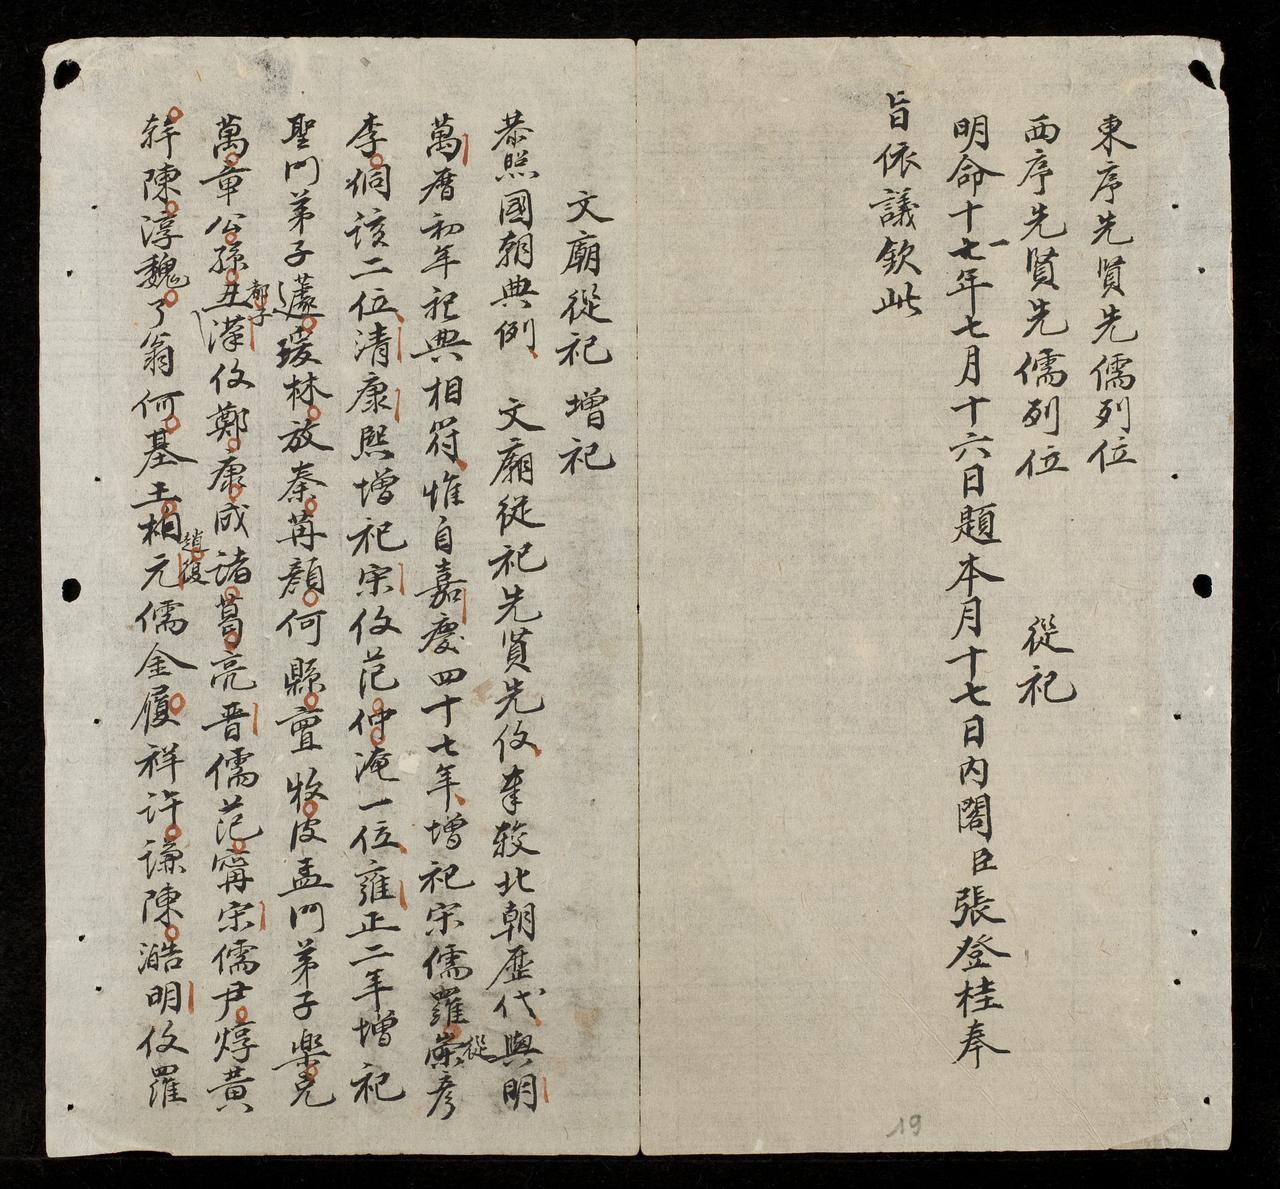 東序先賢先儒列位
西序先賢先儒列位 從祀
明命十七年七月十六日題本月十七日内閣臣張登桂奉
旨依議欽此
文廟從祀增祀
恭照國朝典例文廟從祀先賢先伩奉較北朝歷代與明
萬曆初年祀典相符惟自嘉慶四十七年增祀宋儒羅從彥
李侗該二位清康熙增祀宋伩范仲淹一位雍正二年增祀
聖門弟子蘧瑗林放秦苒顏何縣亶牧皮孟門弟子樂克
萬章公孫丑漢伩鄭康成諸葛亮晋儒范甯宋儒尹焞黃
幹陳淳魏了翁何基王柏趙復元儒金履祥許謙陳澔明伩羅
19